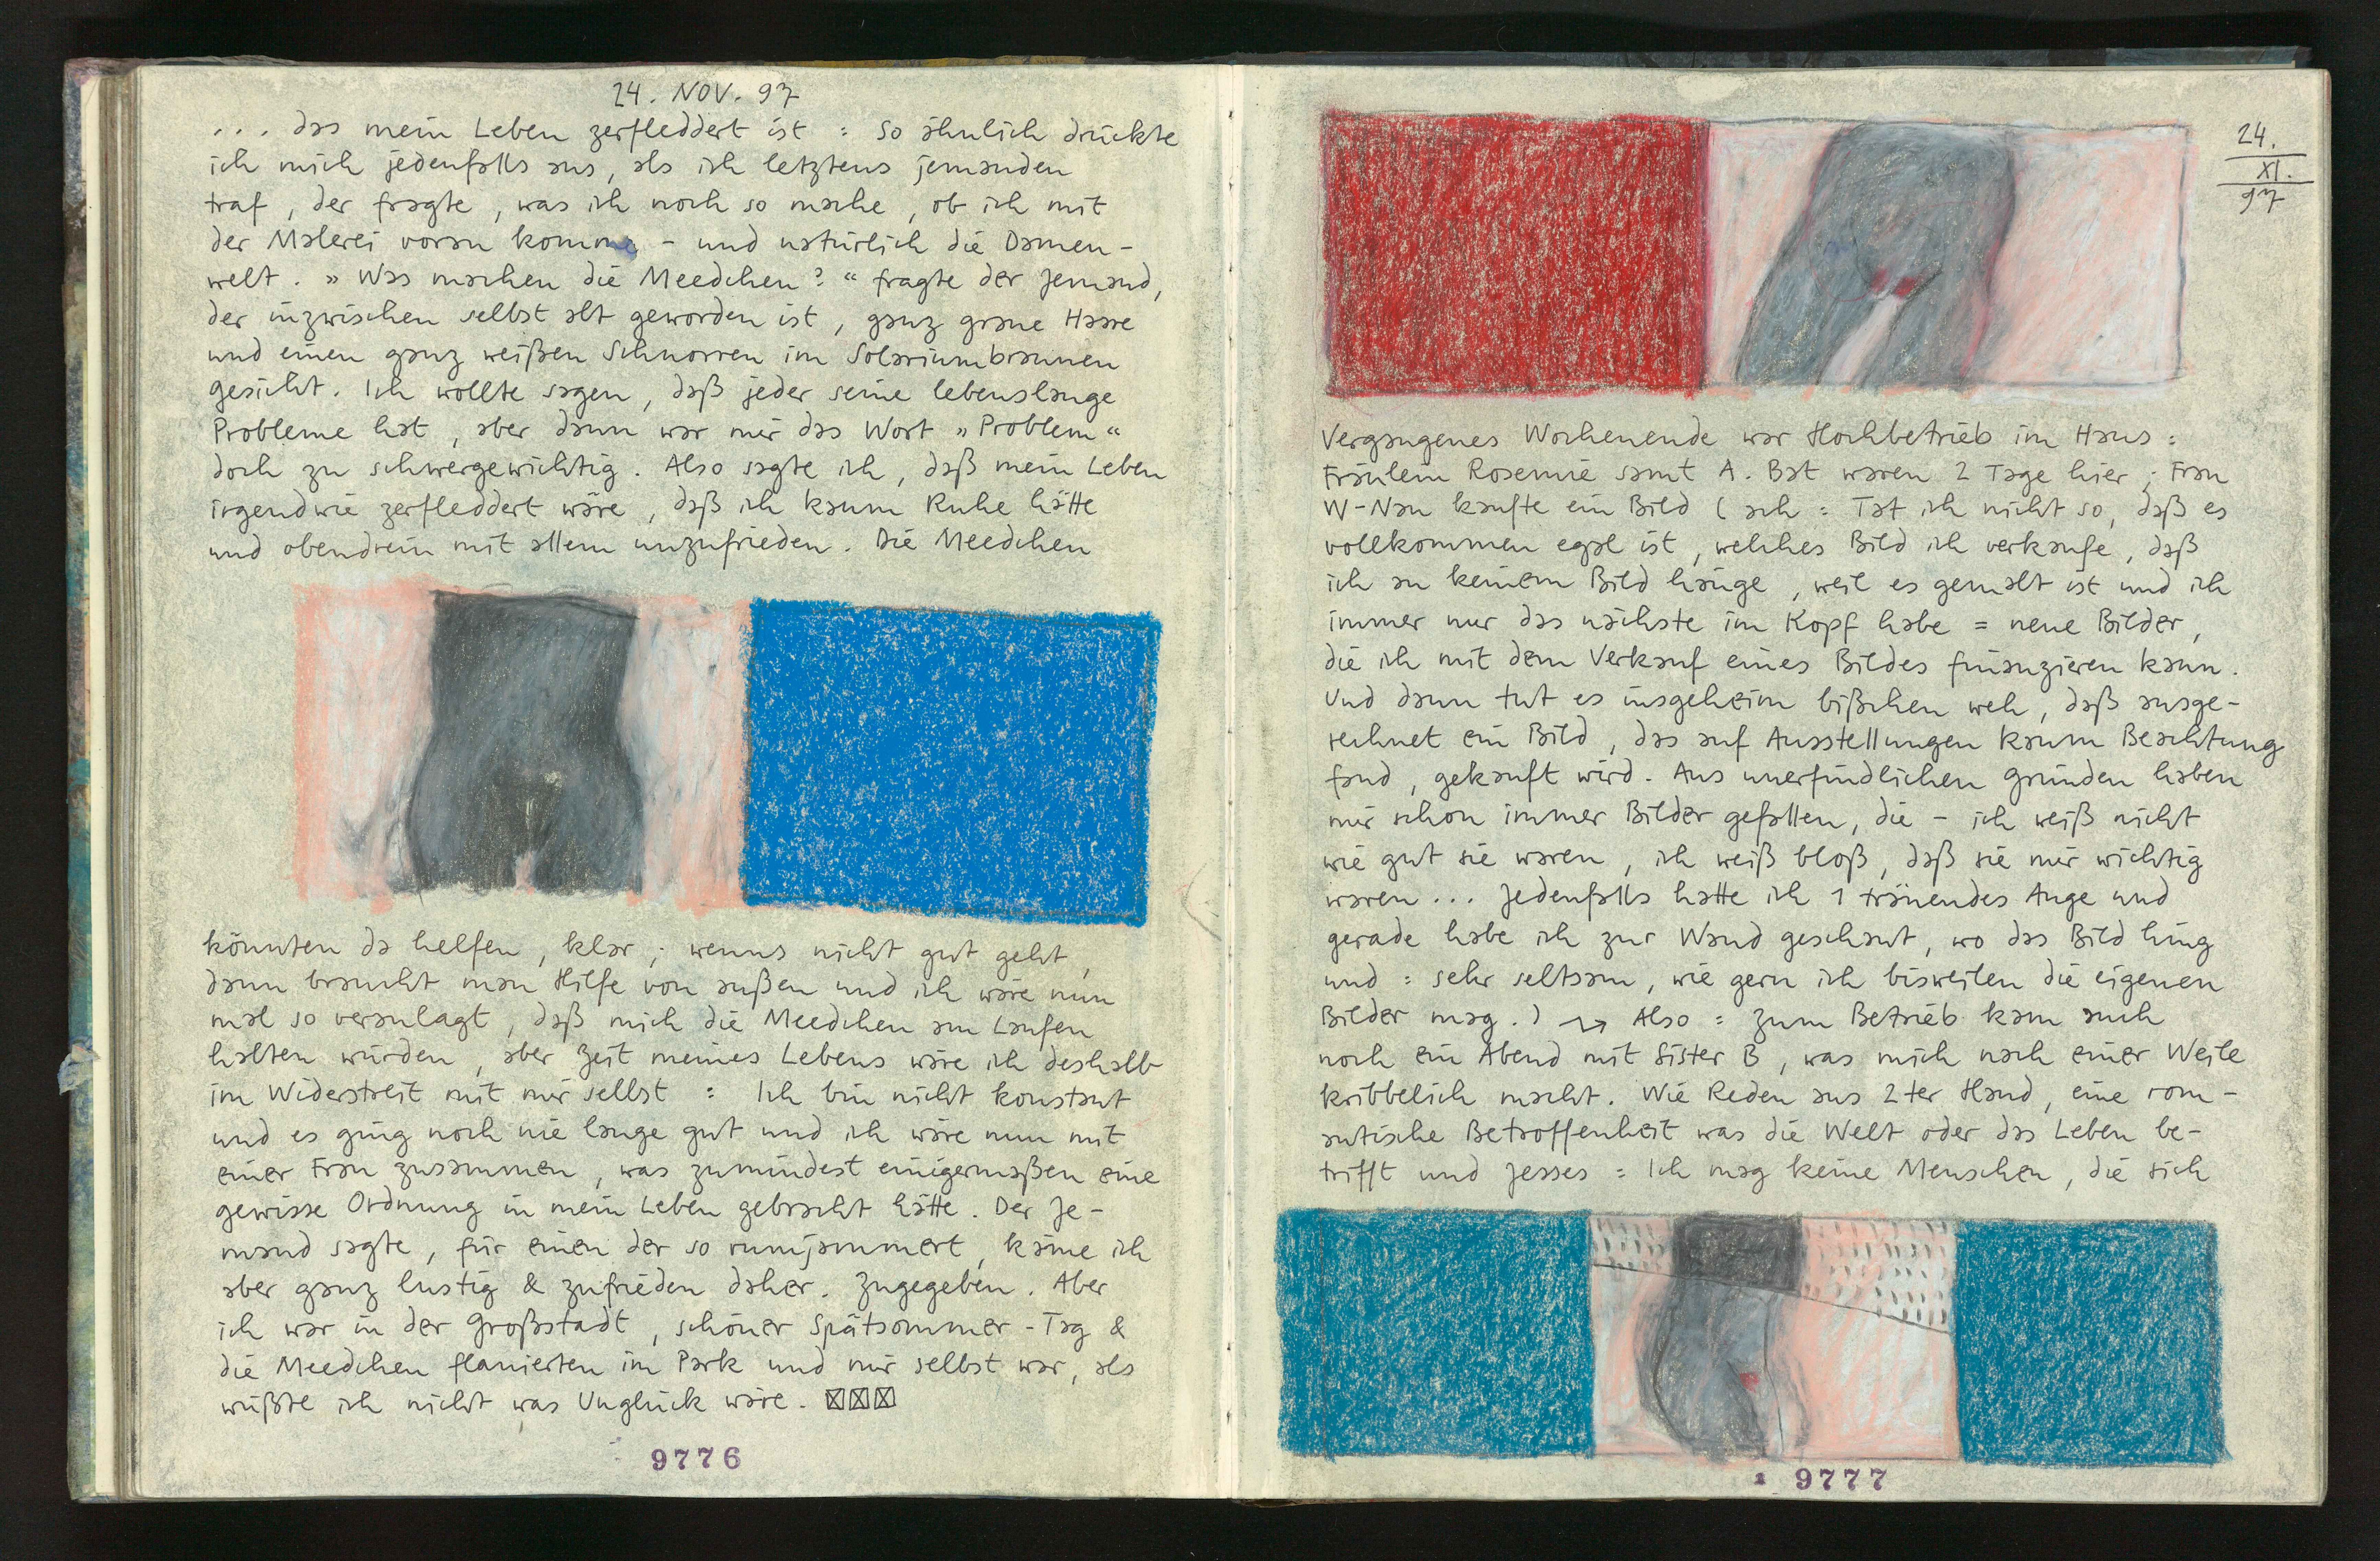 24. NOV. 97
... das mein Leben zerfleddert ist : so ähnlich drückte
ich mich jedenfalls aus, als ich letztens jemanden
traf, der fragte, was ich noch so mache, ob ich mit
der Malerei voran komme - und natürlich die Damen-
welt. » Was machen die Meedchen? “ fragte der Jemand,
der inzwischen selbst alt geworden ist, ganz graue Haare
und einen ganz weißen Schnorren im Solariumbraunen
Gesicht. Ich wollte sagen, daß jeder seine lebenslange
Probleme hat, aber dann war mir das Wort „Problem“
doch zu schwergewichtig. Also sagte ich, daß mein Leben
irgendwie zerfleddert wäre, daß ich kaum Ruhe hätte
und obendrein mit allem unzufrieden. Die Meedchen
könnten da helfen, klar; wenns nicht gut geht,
dann braucht man Hilfe von außen und ich wäre nun
mal so veranlagt, daß mich die Meedchen am Laufen
halten würden, aber Zeit meines Lebens wäre ich deshalb
im Widerstreit mit mir selbst : Ich bin nicht konstant
und es ging noch nie lange gut und ich wäre nun mit
einer Frau zusammen, was zumindest einigermaßen eine
gewisse Ordnung in mein Leben gebracht hätte. Der Je-
mand sagte, für einen der so rumjammert, käme ich
aber ganz lustig & zufrieden daher. Zugegeben. Aber
ich war in der Großstadt, schöner Spätsommer-Tag &
die Meedchen flanierten im Park und mir selbst war, als
wüßte ich nicht was Unglück wäre.
9776
24.
XI.
97
Vergangenes Wochenende war Hochbetrieb im Haus :
Fräulein Rosemie samt A. Bat waren 2 Tage hier; Frau
W-Nau kaufte ein Bild ( ach : Tat ich nicht so, daß es
vollkommen egal ist, welches Bild ich verkaufe, daß
ich an keinem Bild hänge, weil es gemalt ist und ich
immer nur das nächste im Kopf habe = neue Bilder,
die ich mit dem Verkauf eines Bildes finanzieren kann.
Und dann tut es insgeheim bißchen weh, daß ausge-
rechnet ein Bild, das auf Ausstellungen kaum Beachtung
fand, gekauft wird. Aus unerfindlichen Gründen haben
mir schon immer Bilder gefallen, die - ich weiß nicht
wie gut sie waren, ich weiß bloß, daß sie mir wichtig
waren... Jedenfalls hatte ich 1 tränendes Auge und
gerade habe ich zur Wand geschaut, wo das Bild hing
und : sehr seltsam, wie gern ich bisweilen die eigenen
Bilder mag. ) → Also : zum Betrieb kam auch
noch ein Abend mit Sister B, was mich nach einer Weile
kribbelich macht. Wie Reden aus 2ter Hand, eine rom-
antische Betroffenheit was die Welt oder das Leben be-
trifft und Jesses : Ich mag keine Menschen, die sich
9777